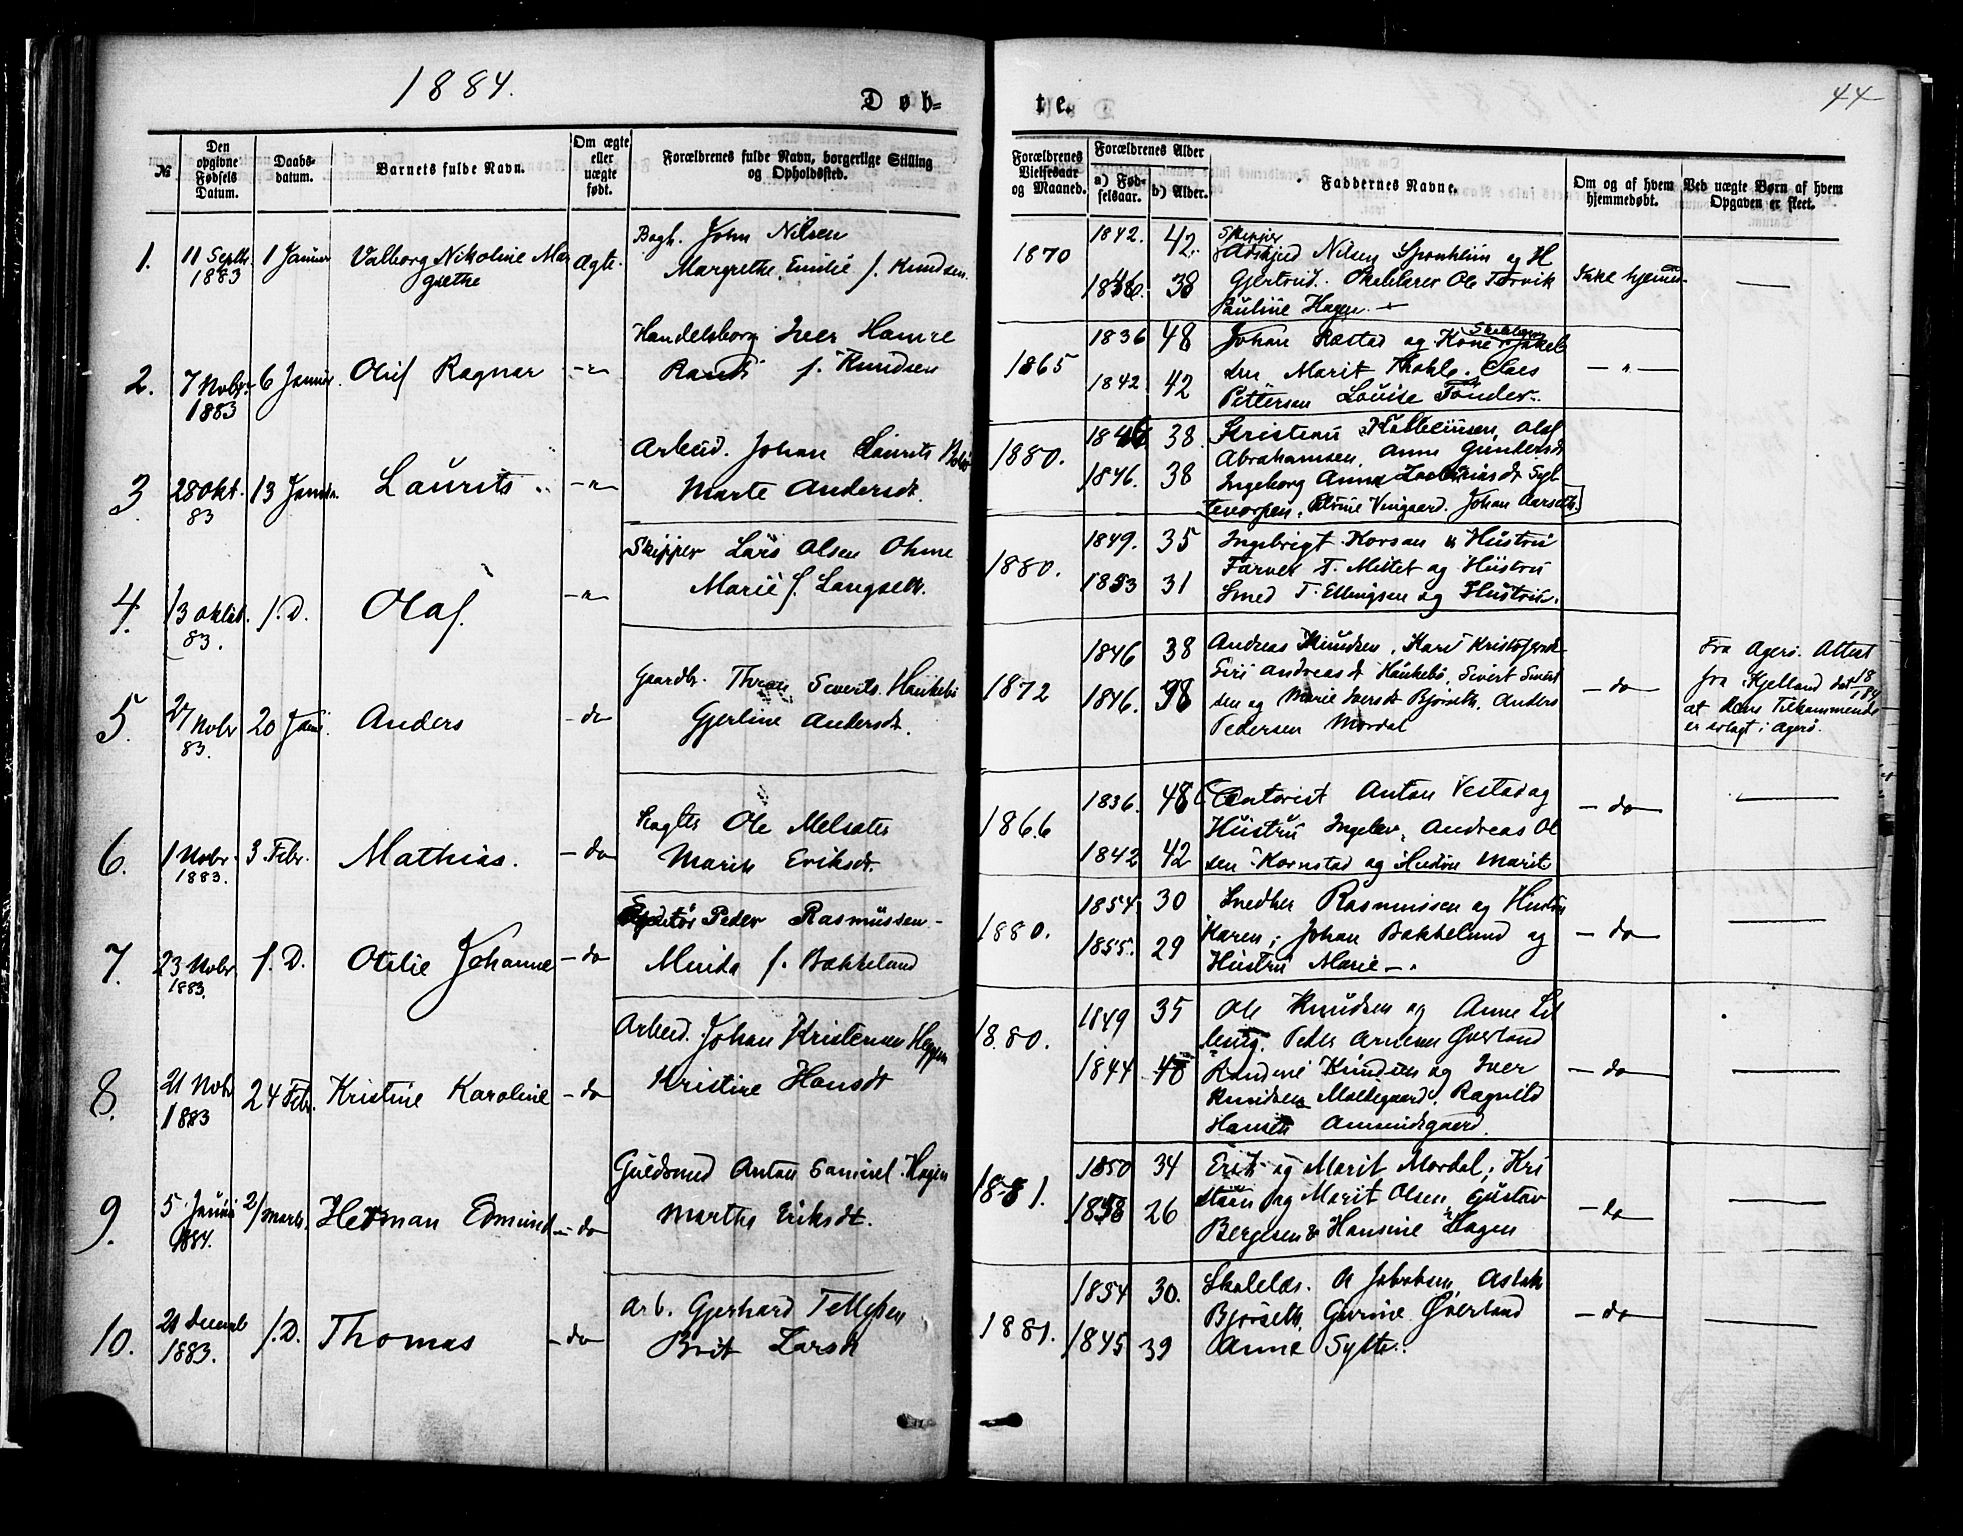 1884.
Døb=
te.
44
№
Den opgivne Fødsels Datum.
Daabs-datum.
Barnets fulde Navn.
Om ægte eller uægte født.
Forældrenes fulde Navn, borgerlige Stilling og Opholdssted.
Forældrenes Vielsesaar og Maaned.
Forældrenes Alder
a) Fødselsaar.
b) Alder.
Faddernes Navne.
Om og af hvem hjemmedøbt.
Ved uægte Børn af hvem Opgaven er skeet.
1. 11 Septb. 1883 1 Januar Valborg Nikoline Mar
grethe
Ægte.
Bogh. John Nilsen
Margrethe Emilie f. Knudsen
1870
1842. 42.
38
Skipper
Nilsen og H
Gjertrud. Ole Torvik
Pauline Hagen
Ikke hjemmed.
2. 7 Novbr. 1883 6 Januar. Oluf Ragnar - " -
Handelsborg Iver Hamre
Randi f. Knudsen
1865
1836 48
1842 42
Johan Ræstad og Kone
sen Marit Claes
Pettersen Louise Tønder.
- " -
3 28 Okt. 83 13 Januar. Laurits - " -
Arbeid. Johan Laurits
Marte Andersdt.
1880.
38.
1846. 38
Kristian Olaf
Abrahamsen, Anne Gundersdt
Ingeborg Anna
Johan Aarseth.
4. 13 Oktob. 83. s. D. Olaf. - " -
Skipper Lars Olsen Ohme
Marie f. Langseth.
1880.
1849. 35
1853 31
Ingebrigt Korsan & Hustru
Farver T. Mittet og Hustru
Smed T. Ellingsen og Hustru.
5 27 Novbr 83. 20 Janu. Anders - do
Gaardbr. Siverts. Haukebø
Gjerline Andersdt.
1872
1846 38
1846. 38
Andreas Knudsen, Kari Kristofersdt
Siri Andreasdt Haukebø, Sivert Sivert
sen og Marie Iversdt Bjørseth, Anders
Pedersen Mordal
- do -
Fra Agerø. Attest
fra Kjelland dat 18/1 84
at dens Tilkommende
er erlagt i Agerø.
6. 1 Novbr. 1883. 3 Febr. Mathias. - do
Ole Melsæter
Marit Eriksdt.
1866
1836. 48
1842 42
Anton Vestad og
Hustru Andreas Ol
sen Kornstad og Hustru Marit
- do -
7. 23 Novbr 1883. s. D. Otilie Johanne - do
Peder Rasmussen
Minda f. Bakkelund
1880.
1854 30
1855. 29
Snedker Rasmussen og Hustru
Karen; Johan Bakkelund og
Hustru Marie
- do -
8. 21 Novbr 1883 24 Febr. Kristine Karoline - do
Arbeid. Johan Kristensen
Kristine Hansdt
1880.
1849 35
1844
Ole Knudsen og Anne Lil
leng. Peder Arnesen Øverland
Knudsen og Iver
Knudsen Moldegaard, Ragnild
Amundsgaard.
- do -
9. 5. Januar 1884. 2/ Marts. Herman Edmund - do
Guldsmed Anton Samuel Hagen
Marthe Eriksdt.
1881.
1850 34
1858 26
Erik og Marit Mordal; Kri
stian og Marit Olsen, Gustav
Bergesen & Hansine Hagen
- do -
10. 21 Decemb 1883. s. D. Thomas - do
Arb. Gjerhard Tellefsen
Brit Larsdt
1881.
1854 30.
1845 39
Jakobsen Aslak
Bjørseth, Gurine Øverland
Anne Sylte.
- do -